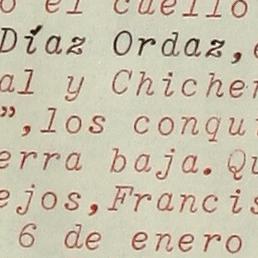 o el cuello
Díaz Ordaz,
al y Chiche
”,los conqu
erra baja. Qu
ejos,Francis
6 de enero